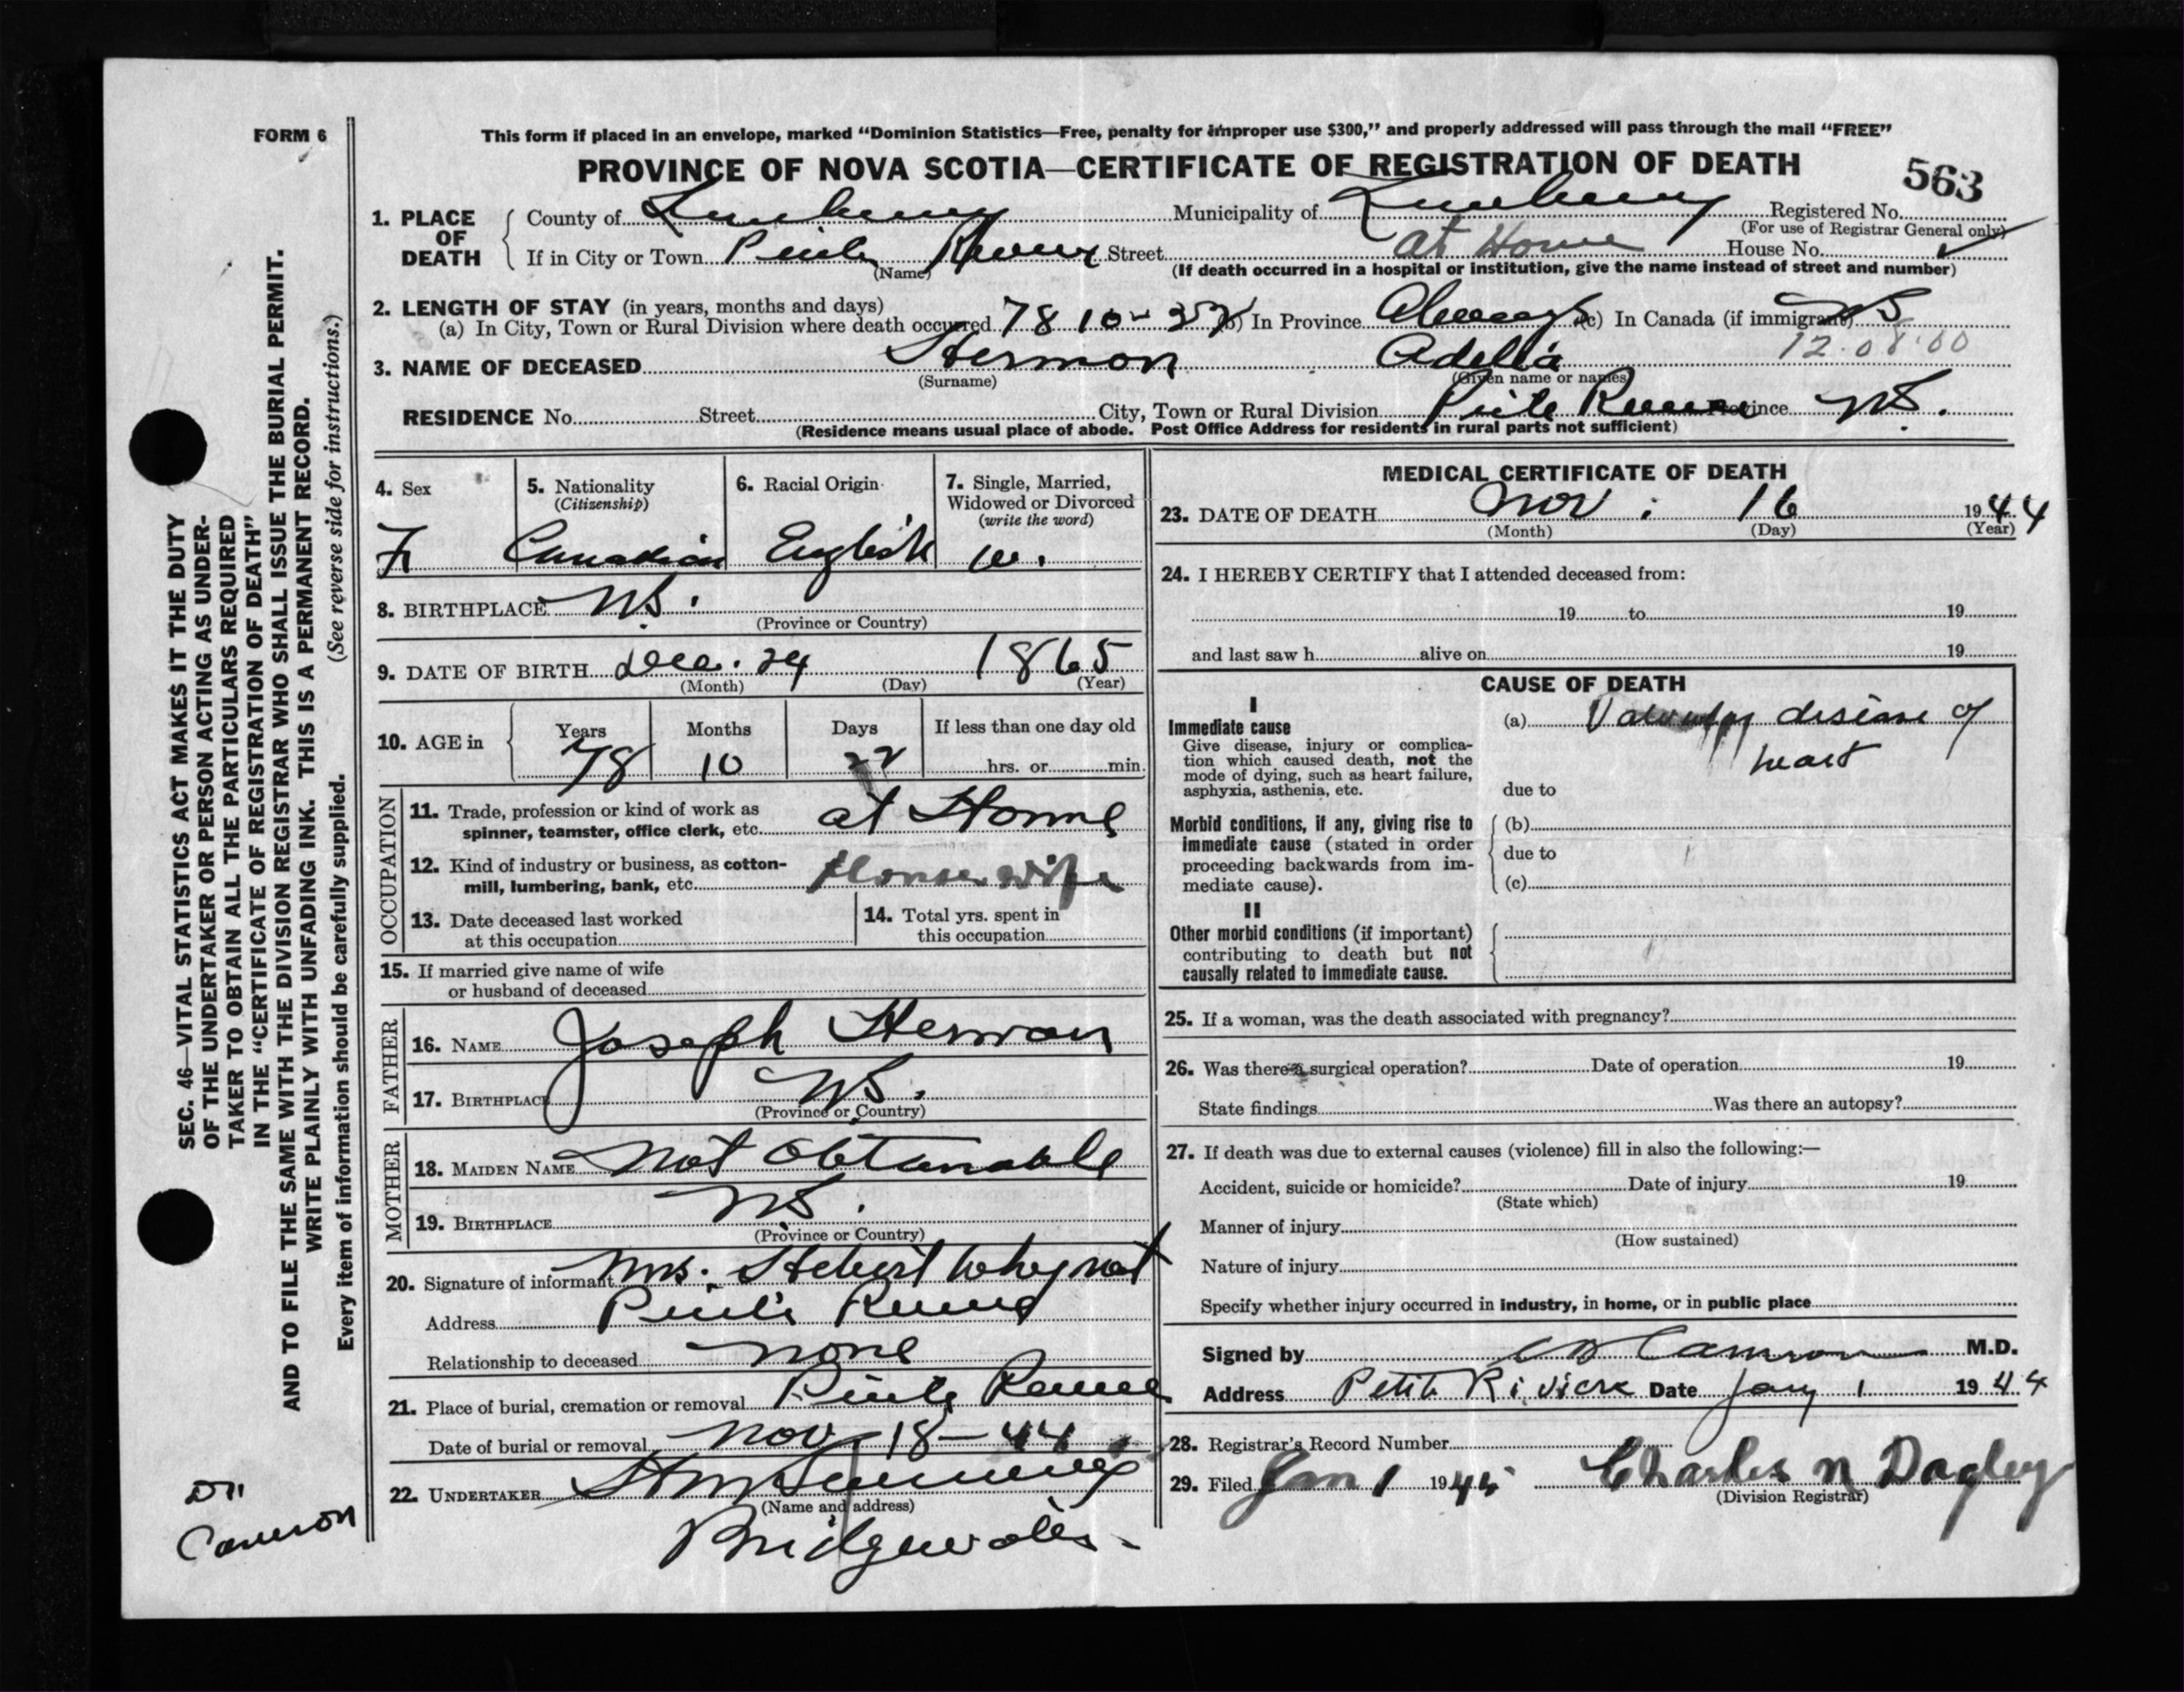 FORM 6
This form if placed in an envelope, marked “Dominion Statistics—Free, penalty for improper use $300,” and properly addressed will pass through the mail “FREE”
PROVINCE OF NOVA SCOTIA—CERTIFICATE OF REGISTRATION OF DEATH
563
1. PLACE OF DEATH
County of Lunenburg Municipality of Lunenburg Registered No.
(For use of Registrar General only)
If in City or Town Street at Home House No.
(Name) (If death occurred in a hospital or institution, give the name instead of street and number)
2. LENGTH OF STAY (in years, months and days)
(a) In City, Town or Rural Division where death occurred 78 10 - 22 (b) In Province Always (c) In Canada (if immigrant) NS
12.08.00
3. NAME OF DECEASED Hermon Adelia
(Surname) (Given name or names)
RESIDENCE No. Street City, Town or Rural Division Province NS.
(Residence means usual place of abode. Post Office Address for residents in rural parts not sufficient)
4. Sex
F
5. Nationality
(Citizenship)
Canadian
6. Racial Origin
English
7. Single, Married,
Widowed or Divorced
(write the word)
w.
8. BIRTHPLACE NS.
(Province or Country)
9. DATE OF BIRTH Dec. 24 1865
(Month) (Day) (Year)
10. AGE in
Years Months Days If less than one day old
78 10 22 hrs. or min.
OCCUPATION
11. Trade, profession or kind of work as
spinner, teamster, office clerk, etc. at Home
12. Kind of industry or business, as cotton-
mill, lumbering, bank, etc. Housewife
13. Date deceased last worked
at this occupation
14. Total yrs. spent in
this occupation
15. If married give name of wife
or husband of deceased
FATHER
16. NAME Joseph Herman
17. BIRTHPLACE NS.
(Province or Country)
MOTHER
18. MAIDEN NAME not obtainable
19. BIRTHPLACE NS.
(Province or Country)
20. Signature of informant Mrs. Hebert Whynot
Address
Relationship to deceased none
21. Place of burial, cremation or removal
Date of burial or removal Nov 18 - 44
22. UNDERTAKER
(Name and address)
Bridgewater.
MEDICAL CERTIFICATE OF DEATH
23. DATE OF DEATH Nov. 16 1944
(Month) (Day) (Year)
24. I HEREBY CERTIFY that I attended deceased from:
19 to 19
and last saw h alive on 19
CAUSE OF DEATH
I
Immediate cause
Give disease, injury or complica-
tion which caused death, not the
mode of dying, such as heart failure,
asphyxia, asthenia, etc.
(a) Valvular disease of
heart
due to
Morbid conditions, if any, giving rise to
immediate cause (stated in order
proceeding backwards from im-
mediate cause).
(b)
due to
(c)
II
Other morbid conditions (if important)
contributing to death but not
causally related to immediate cause.
25. If a woman, was the death associated with pregnancy?
26. Was there a surgical operation? Date of operation 19
State findings Was there an autopsy?
27. If death was due to external causes (violence) fill in also the following:—
Accident, suicide or homicide? Date of injury 19
(State which)
Manner of injury
(How sustained)
Nature of injury
Specify whether injury occurred in industry, in home, or in public place
Signed by Cameron M.D.
Address Petite Riviere Date Jany 1 1944
28. Registrar's Record Number
29. Filed Jan 1 1945 Charles N Dagley
(Division Registrar)
SEC. 46—VITAL STATISTICS ACT MAKES IT THE DUTY
OF THE UNDERTAKER OR PERSON ACTING AS UNDER-
TAKER TO OBTAIN ALL THE PARTICULARS REQUIRED
IN THE “CERTIFICATE OF REGISTRATION OF DEATH”
AND TO FILE THE SAME WITH THE DIVISION REGISTRAR WHO SHALL ISSUE THE BURIAL PERMIT.
WRITE PLAINLY WITH UNFADING INK. THIS IS A PERMANENT RECORD.
Every item of information should be carefully supplied. (See reverse side for instructions.)
Dr
Cameron